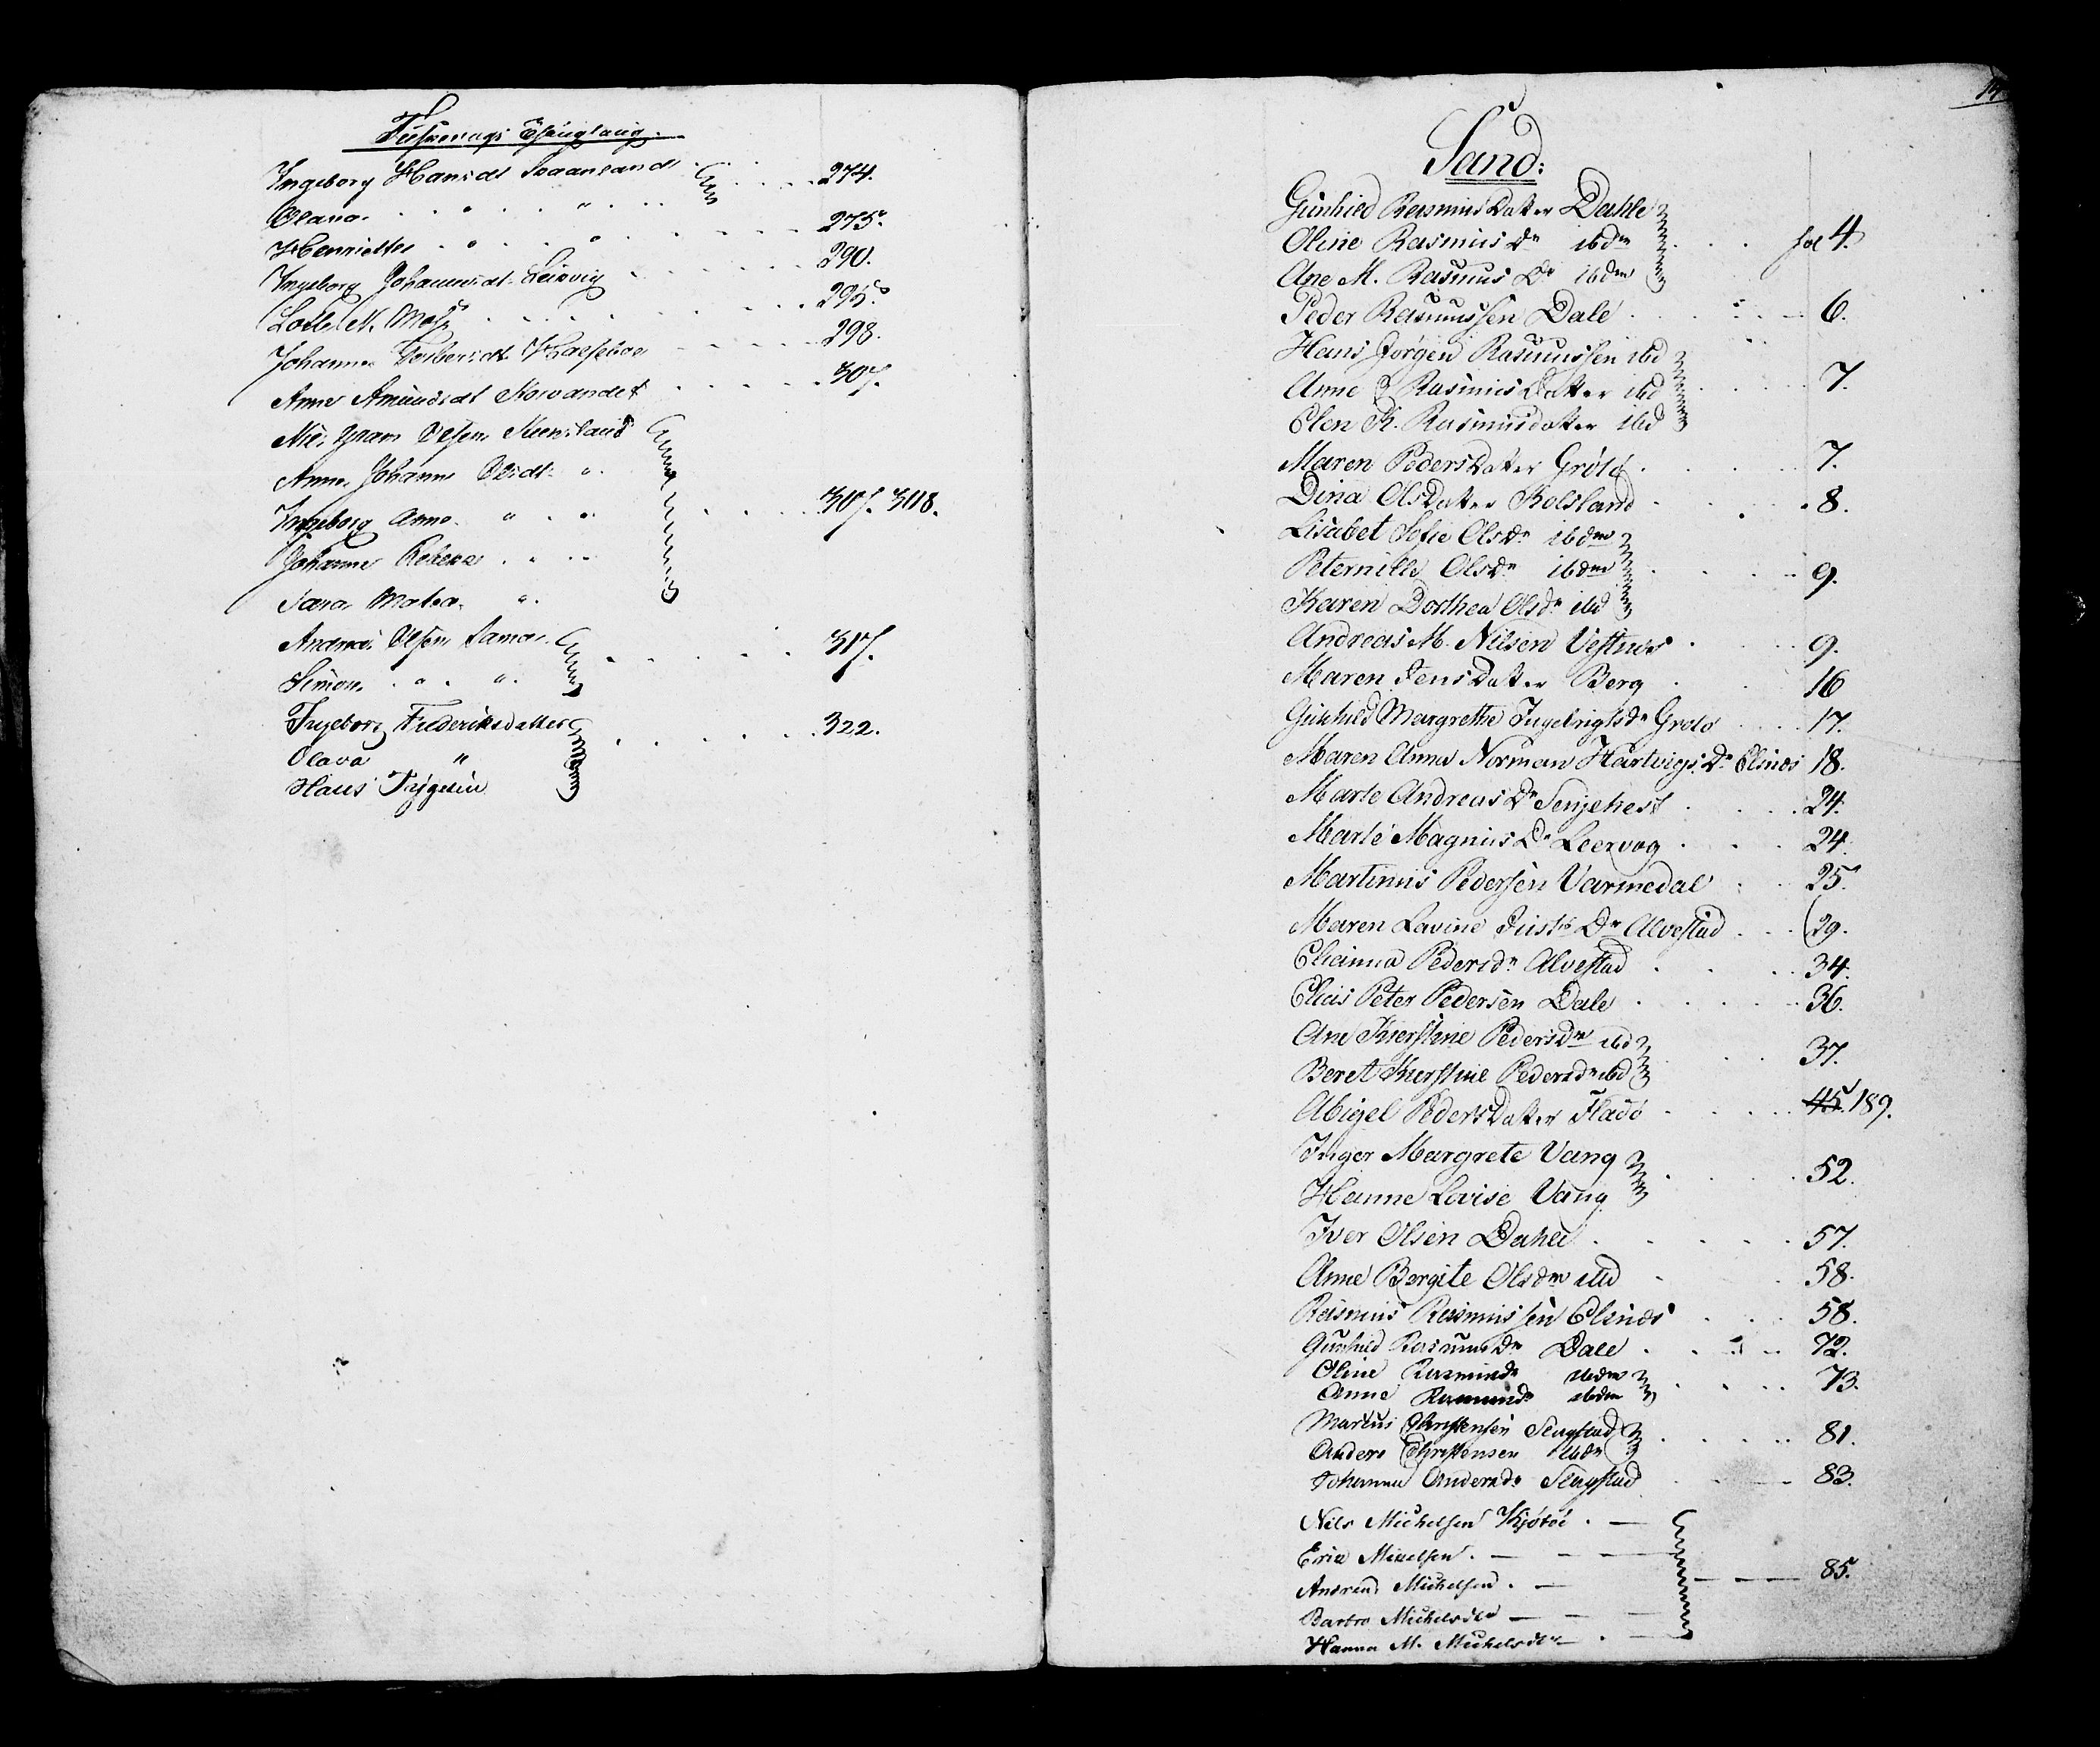 Ingeborg Hansdt 274.
Olava 275.
Henriette 290.
Ingeborg Johannesdt Leirvig 295.
298.
Johanne 307.
Anne Amundsdt
Nils Olsen
Anne Johanne Olsdt "
Ingeborg Anna " 307. 308.
Johanne Rebekka "
Sara Matea "
Andreas Olsen 317.
Simon " "
Ingeborg Frederiksdatter 322.
Olava "
Hans
14
Sand:
Gunhild RasmusDatter Dahle
Oline Rasmus Dr ibdm fol 4.
Ane M. Rasmus Dr ibdm
Peder Rasmussen Dale 6.
Hans Jørgen Rasmussen ibd
Anne RasmusDatter ibd 7.
Elen K. Rasmusdatter ibd
Maren PedersDatter Grötö 7.
Dina OlsDatter Kolsland 8.
Lisabet Sofie OlsDr ibdm
Peternille Olsdr ibdm 9.
Karen Dorthea Olsdr ibd
Andreas M. Nilsen Vestnes 9.
Maren JensDatter Berg 16
Gunhild Margrethe Ingebrigtsdr Grötö 17.
Maren Anna Norman HartvigsDr Elsnes 18.
Marte AndreasDr Senjehest 24.
Marte MagnusDr Leervog 24.
Martinus Pedersen Varmedal 25.
Maren Lavine Dr Alvestad 29.
Elianna Pedersdr Alvestad 34.
Elias Peter Pedersen Dale 36.
Ane Kierstine Pedersdr ibd
Beret Kierstine Pedersdr ibd 37.
Abigel PedersDatter Fladö 45. 189.
Inger Margrete Vang
Hanne Lovise Vang 52.
Iver Olsen Dahle 57.
Anne Bergite Olsdr ibd 58.
Rasmus Rasmussen Elsnes 58.
Gunhild Rasmusdr Dale 72.
Oline Rasmusdr ibdm
Anne Rasmusdr ibdm 73.
Martus Christensen Slagstad
Anders Christensen ibdm 81.
Johanna Andersdr Slagstad 83.
Nils Michelsen Kjötöe
Erik Michelsen
Andreas Michelsen 85.
Barbro Michelsdtr
Hanna M. Michelsdtr